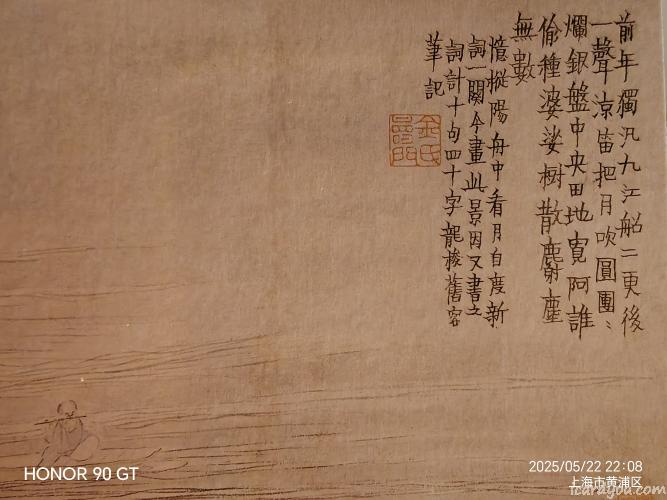 前年獨汎九江船二更後
一聲涼笛把月吹圓團〻
爛銀盤中央田地寬阿誰
偷種婆娑樹散麝塵
無數
憶樅陽舟中看月自度新
詞一闋今畫此景因又書之
詞計十句四十字龍梭舊客
筆記
金氏
HONOR 90 GT
2025/05/22 22:08
上海市黄浦区
icarayou.com